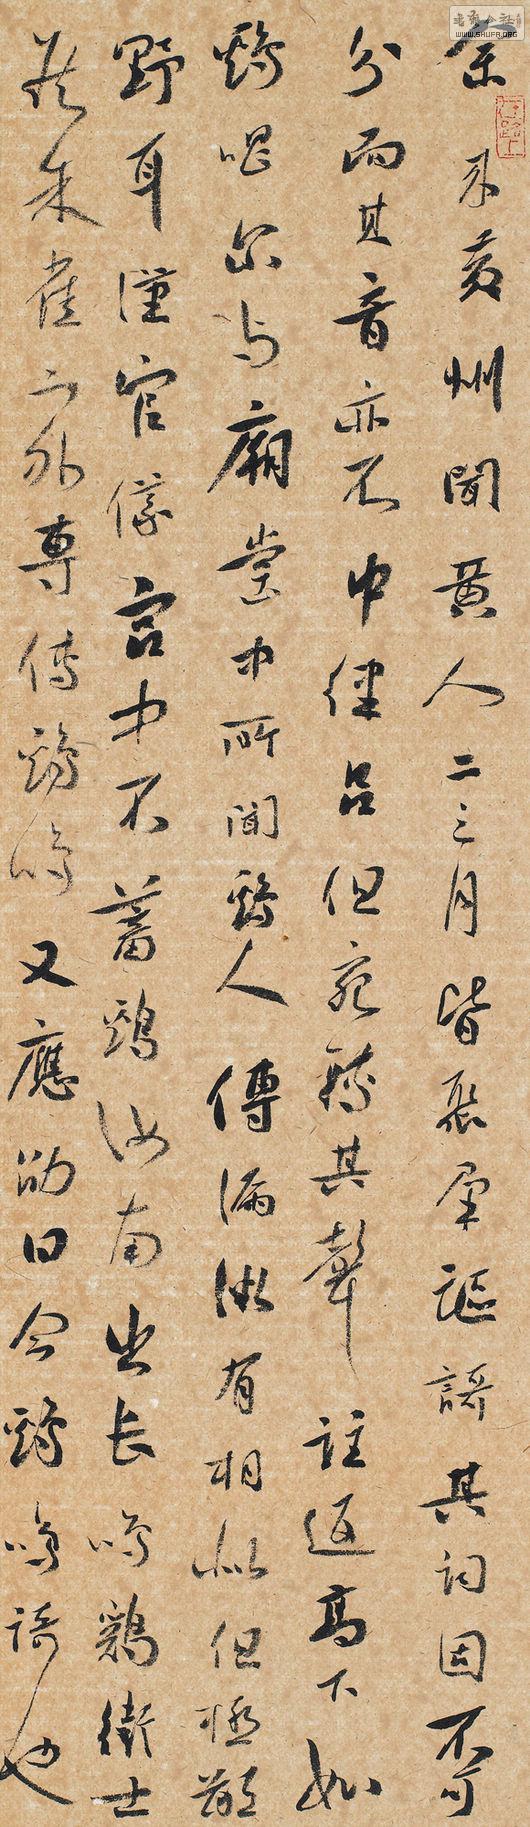 余来黄州聞黄人二三月皆聚羣謳謌其詞固不可
分而其音亦不中律吕但宛轉其聲往返高下如
鷄唱尔与廟堂中所聞鷄人傳漏微有相似但極鄙
野耳漢官儀宫中不蓄鷄汝南出長鳴鷄衛士
候朱雀門外專傳鷄鳴又應劭曰今鷄鳴謌也
WWW.SHUFA.ORG